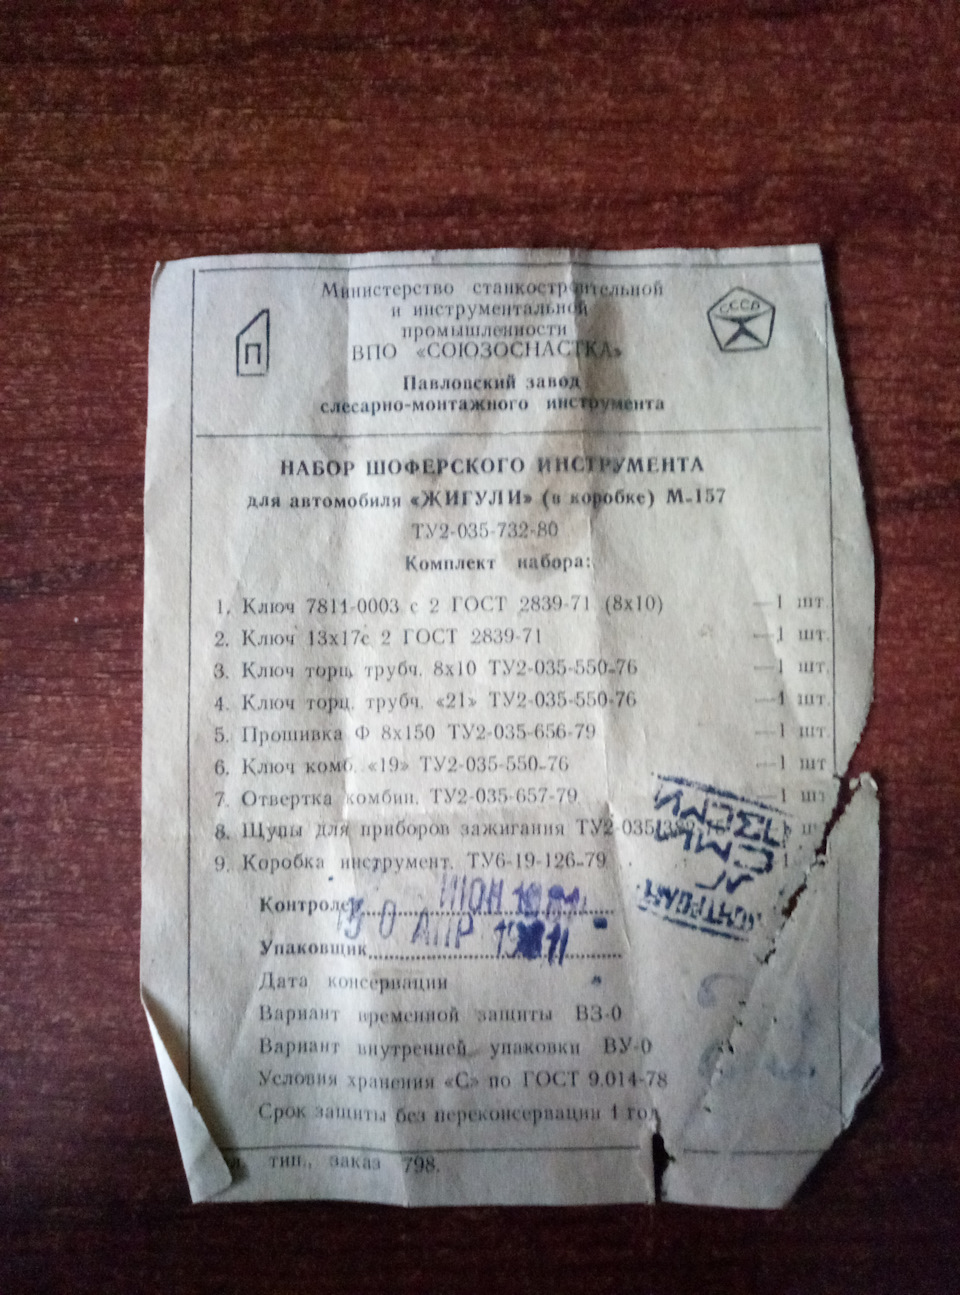 Министерство станкостроительной
и инструментальной
промышленности
ВПО «СОЮЗОСНАСТКА»
П
СССР
Павловский завод
слесарно-монтажного инструмента
НАБОР ШОФЕРСКОГО ИНСТРУМЕНТА
для автомобиля «ЖИГУЛИ» (в коробке) М-157
ТУ2-035-732-80
Комплект набора:
1. Ключ 7811-0003 с 2 ГОСТ 2839-71 (8х10) —1 шт.
2. Ключ 13х17с 2 ГОСТ 2839-71 —1 шт.
3. Ключ торц. трубч. 8х10 ТУ2-035-550-76 —1 шт.
4. Ключ торц. трубч. «21» ТУ2-035-550-76 —1 шт.
5. Прошивка Ф 8х150 ТУ2-035-656-79 —1 шт.
6. Ключ комб. «19» ТУ2-035-550-76 —1 шт
7. Отвертка комбин. ТУ2-035-657-79 —1 шт
8. Щупы для приборов зажигания
9. Коробка инструмент. ТУ6-19-126-79
Контролер ИЮН
Упаковщик АПР
Дата консервации
Вариант временной защиты ВЗ-0
Вариант внутренней упаковки ВУ-0
Условия хранения «С» по ГОСТ 9.014-78
Срок защиты без переконсервации 1 год
тип., заказ 798.